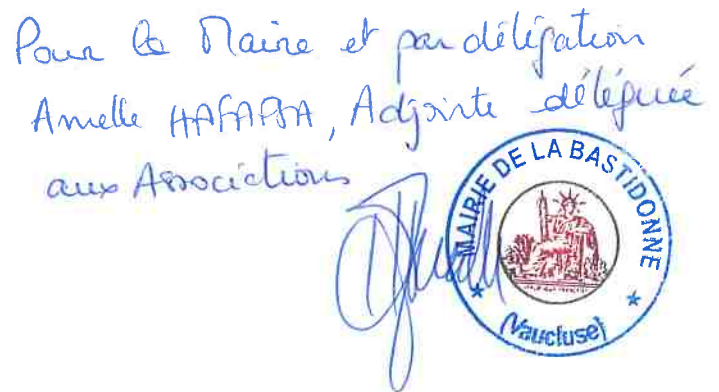 Pour le Maire et par délégation
Amelle, Adjointe déléguée
aux Associations
MAIRIE DE LA BASTIDONNE
(Vaucluse)